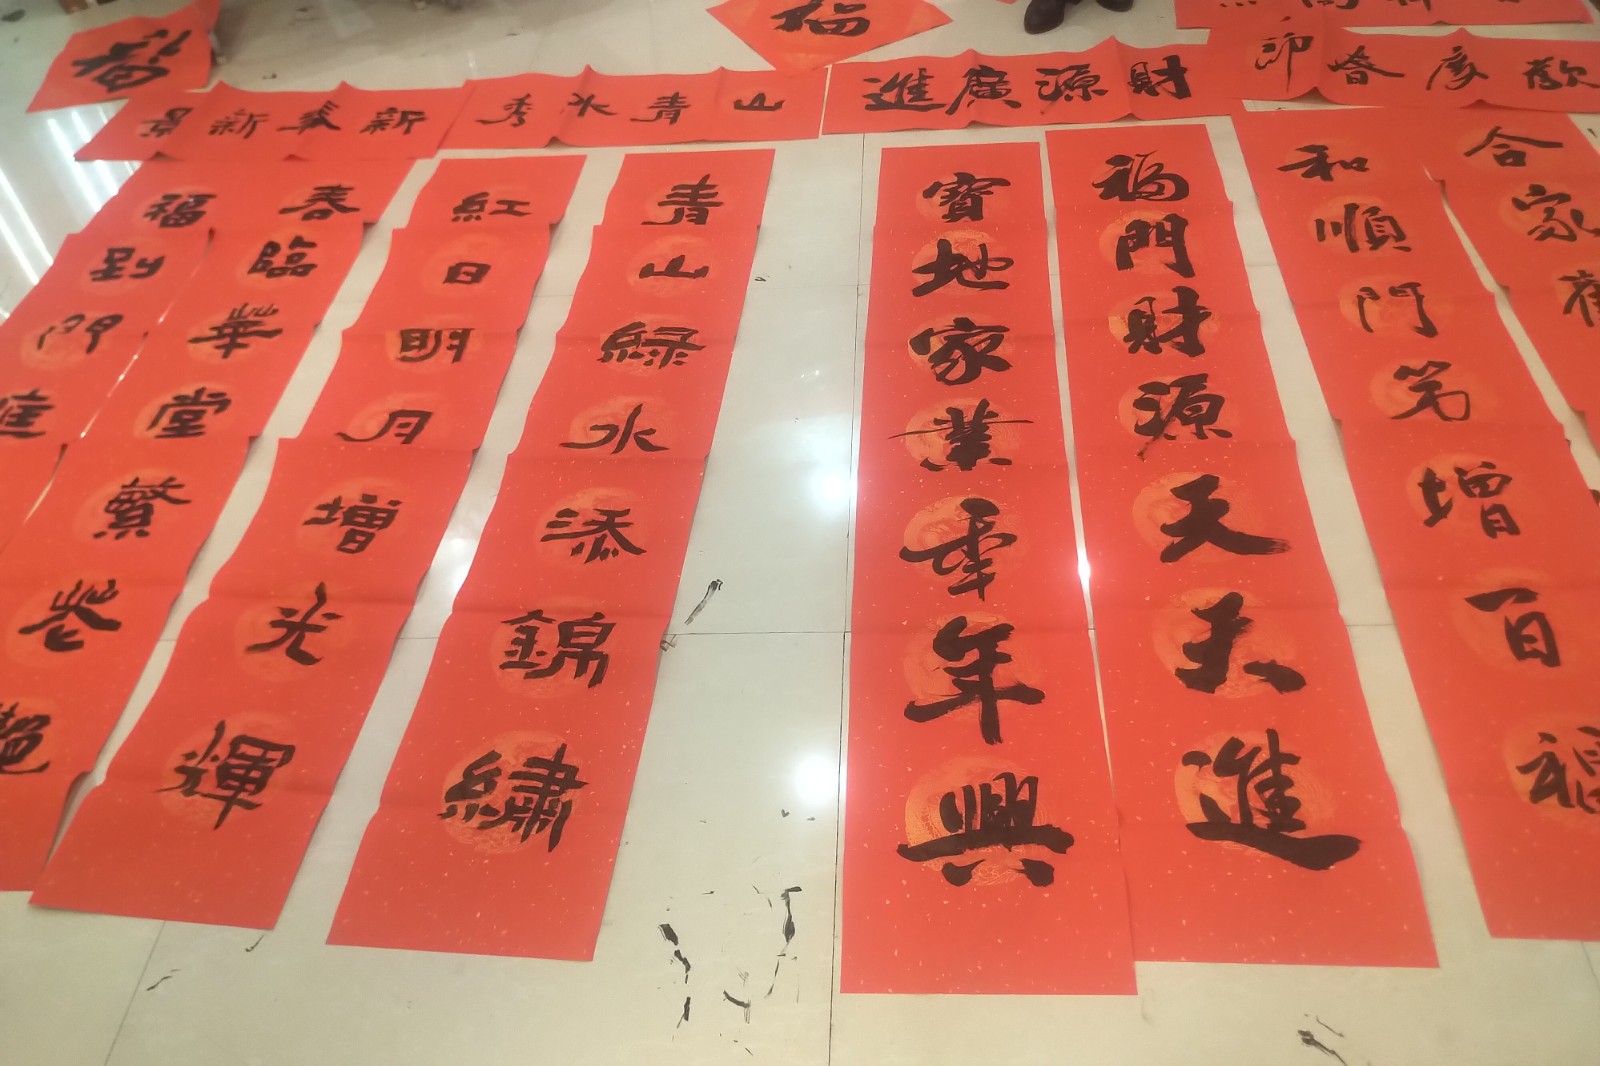 福
春
財源廣進
山青水秀
新春新景
合家
和順門第增百福
福門財源天天進
寶地家業年年興
青山綠水添錦繡
紅日明月增光輝
春臨華堂繁花艷
福到門庭